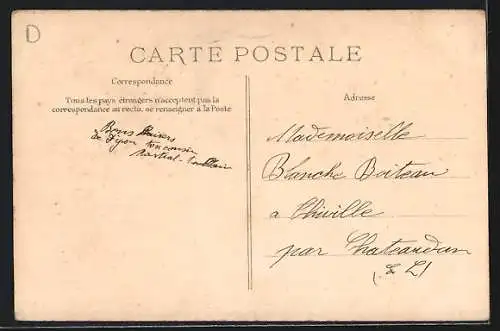 D
CARTE POSTALE
Correspondance
Tous les pays étrangers n'acceptent pas la
correspondance au recto, se renseigner à la Poste
Bons Baisers
de Dijon ton cousin
Martial
Adresse
Mademoiselle
Blanche Boiteau
a Chiville
par Chateaudun
(E L)